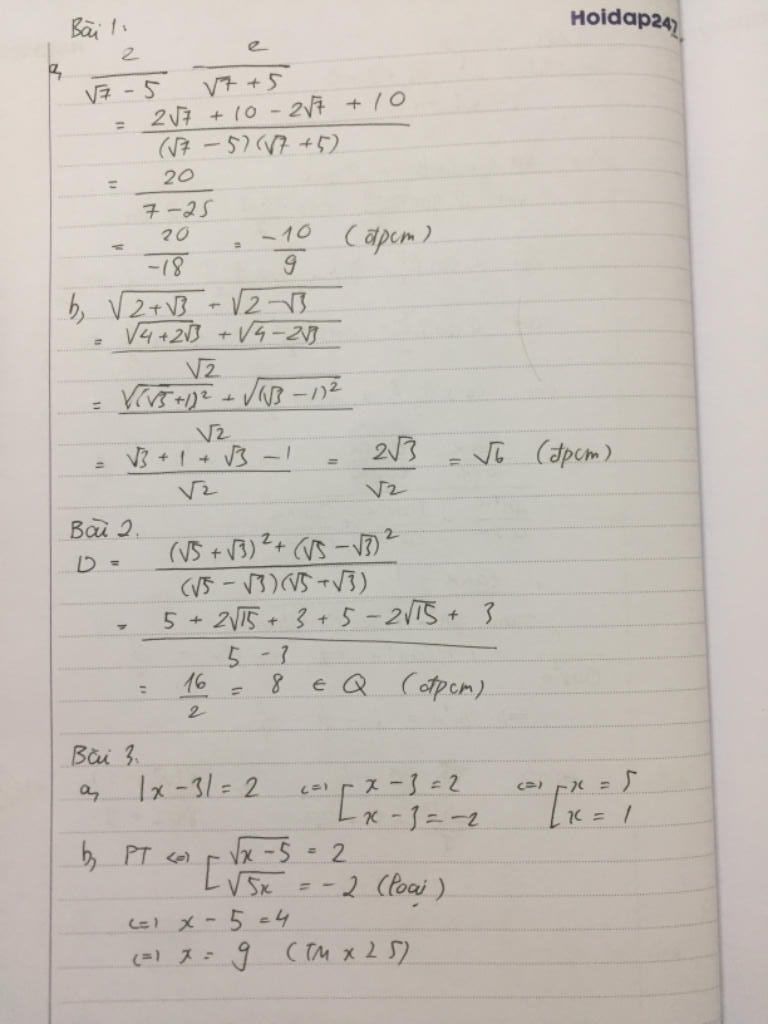 Hoidap247
Bài 1.
a, 2/(√7 - 5) 2/(√7 + 5)
= (2√7 + 10 - 2√7 + 10)/((√7 - 5)(√7 + 5))
= 20/(7 - 25)
= 20/-18 = -10/9 (đpcm)
b, √(2+√3) + √(2-√3)
= (√(4+2√3) + √(4-2√3))/√2
= (√((√3+1)²) + √((√3-1)²))/√2
= (√3 + 1 + √3 - 1)/√2 = 2√3/√2 = √6 (đpcm)
Bài 2.
D = ((√5 + √3)² + (√5 - √3)²)/((√5 - √3)(√5 + √3))
= (5 + 2√15 + 3 + 5 - 2√15 + 3)/(5 - 3)
= 16/2 = 8 ∈ Q (đpcm)
Bài 3.
a, |x - 3| = 2 <=> [x - 3 = 2 <=> [x = 5
[x - 3 = -2 [x = 1
b, PT <=> [√(x-5) = 2
[√(5x) = -2 (loại)
<=> x - 5 = 4
<=> x = 9 (TM x ≥ 5)